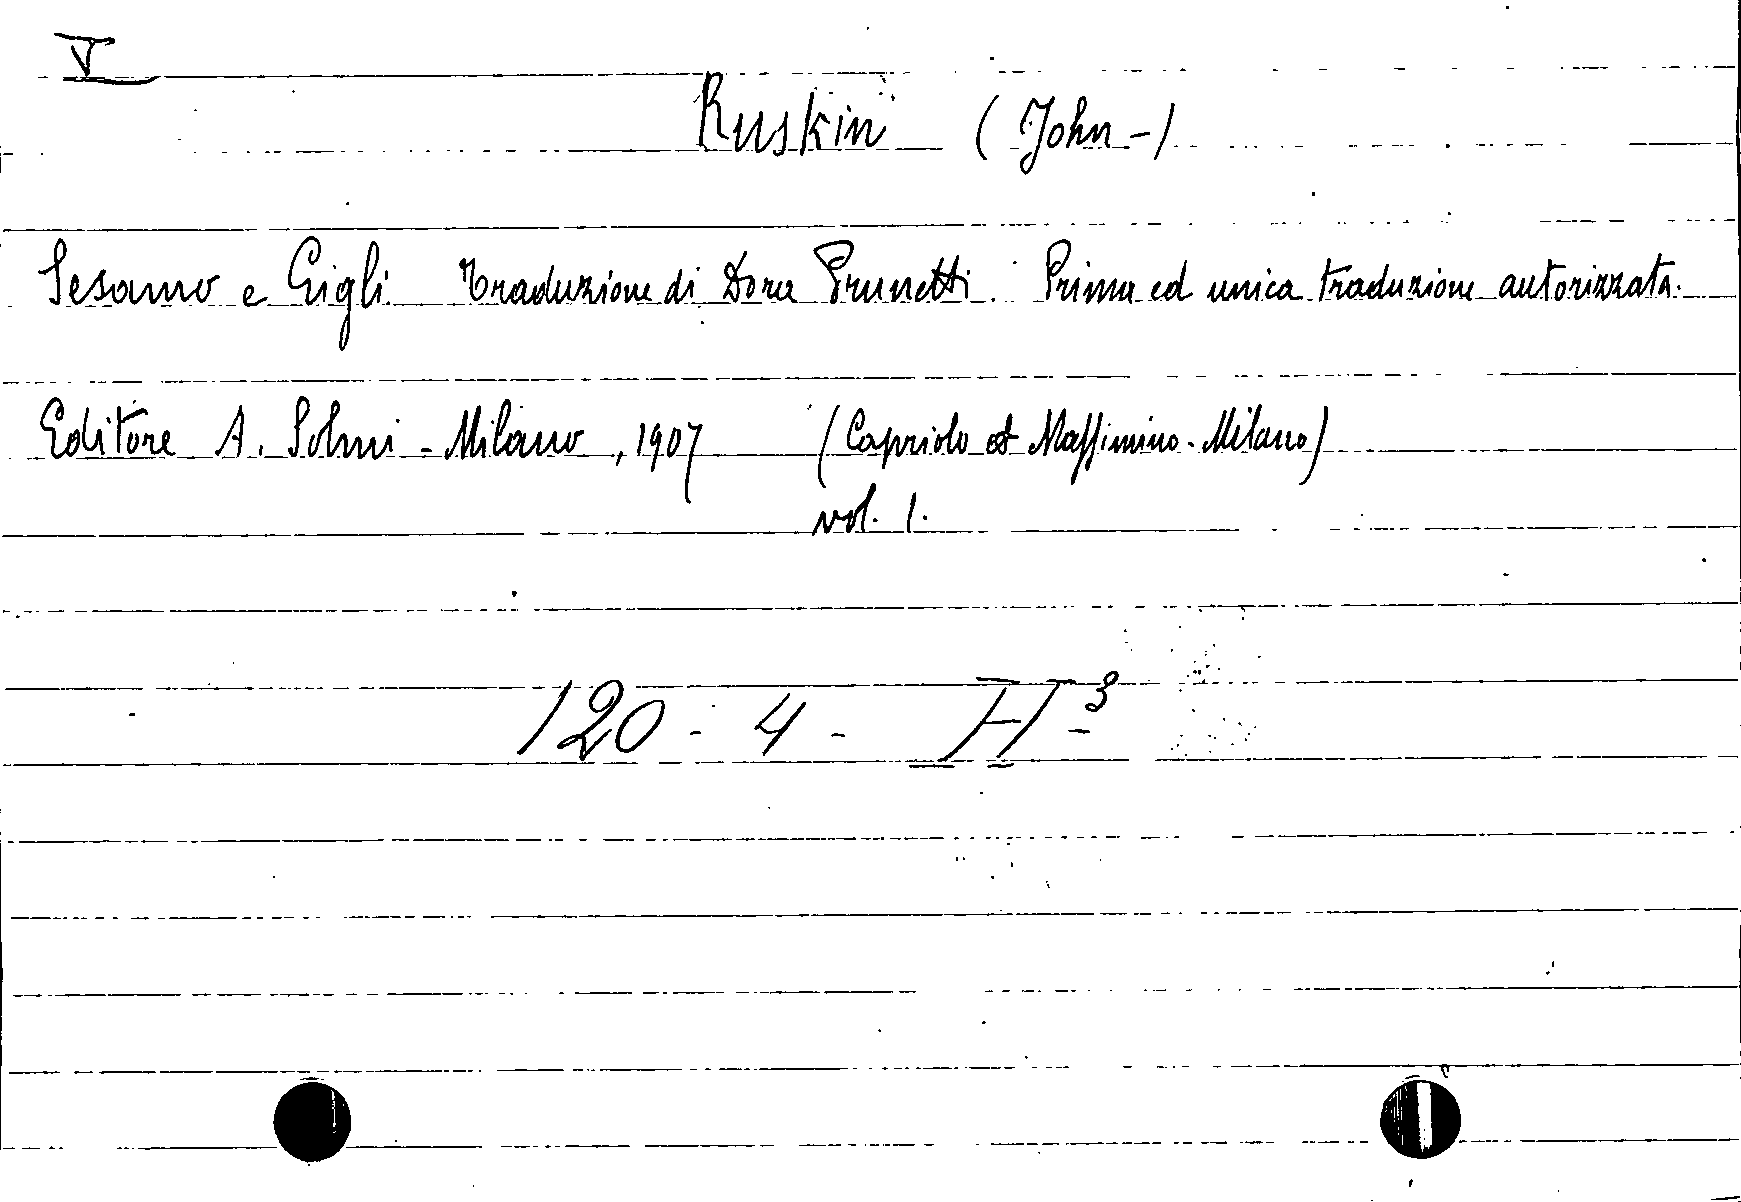 V
Ruskin (John-)
Sesamo e Gigli. Traduzione di Dora Prunetti. Prima ed unica traduzione autorizzata.
Editore A. Solmi - Milano, 1907 (Capriolo et Massimino - Milano)
vol. 1.
120 - 4 - H - 3